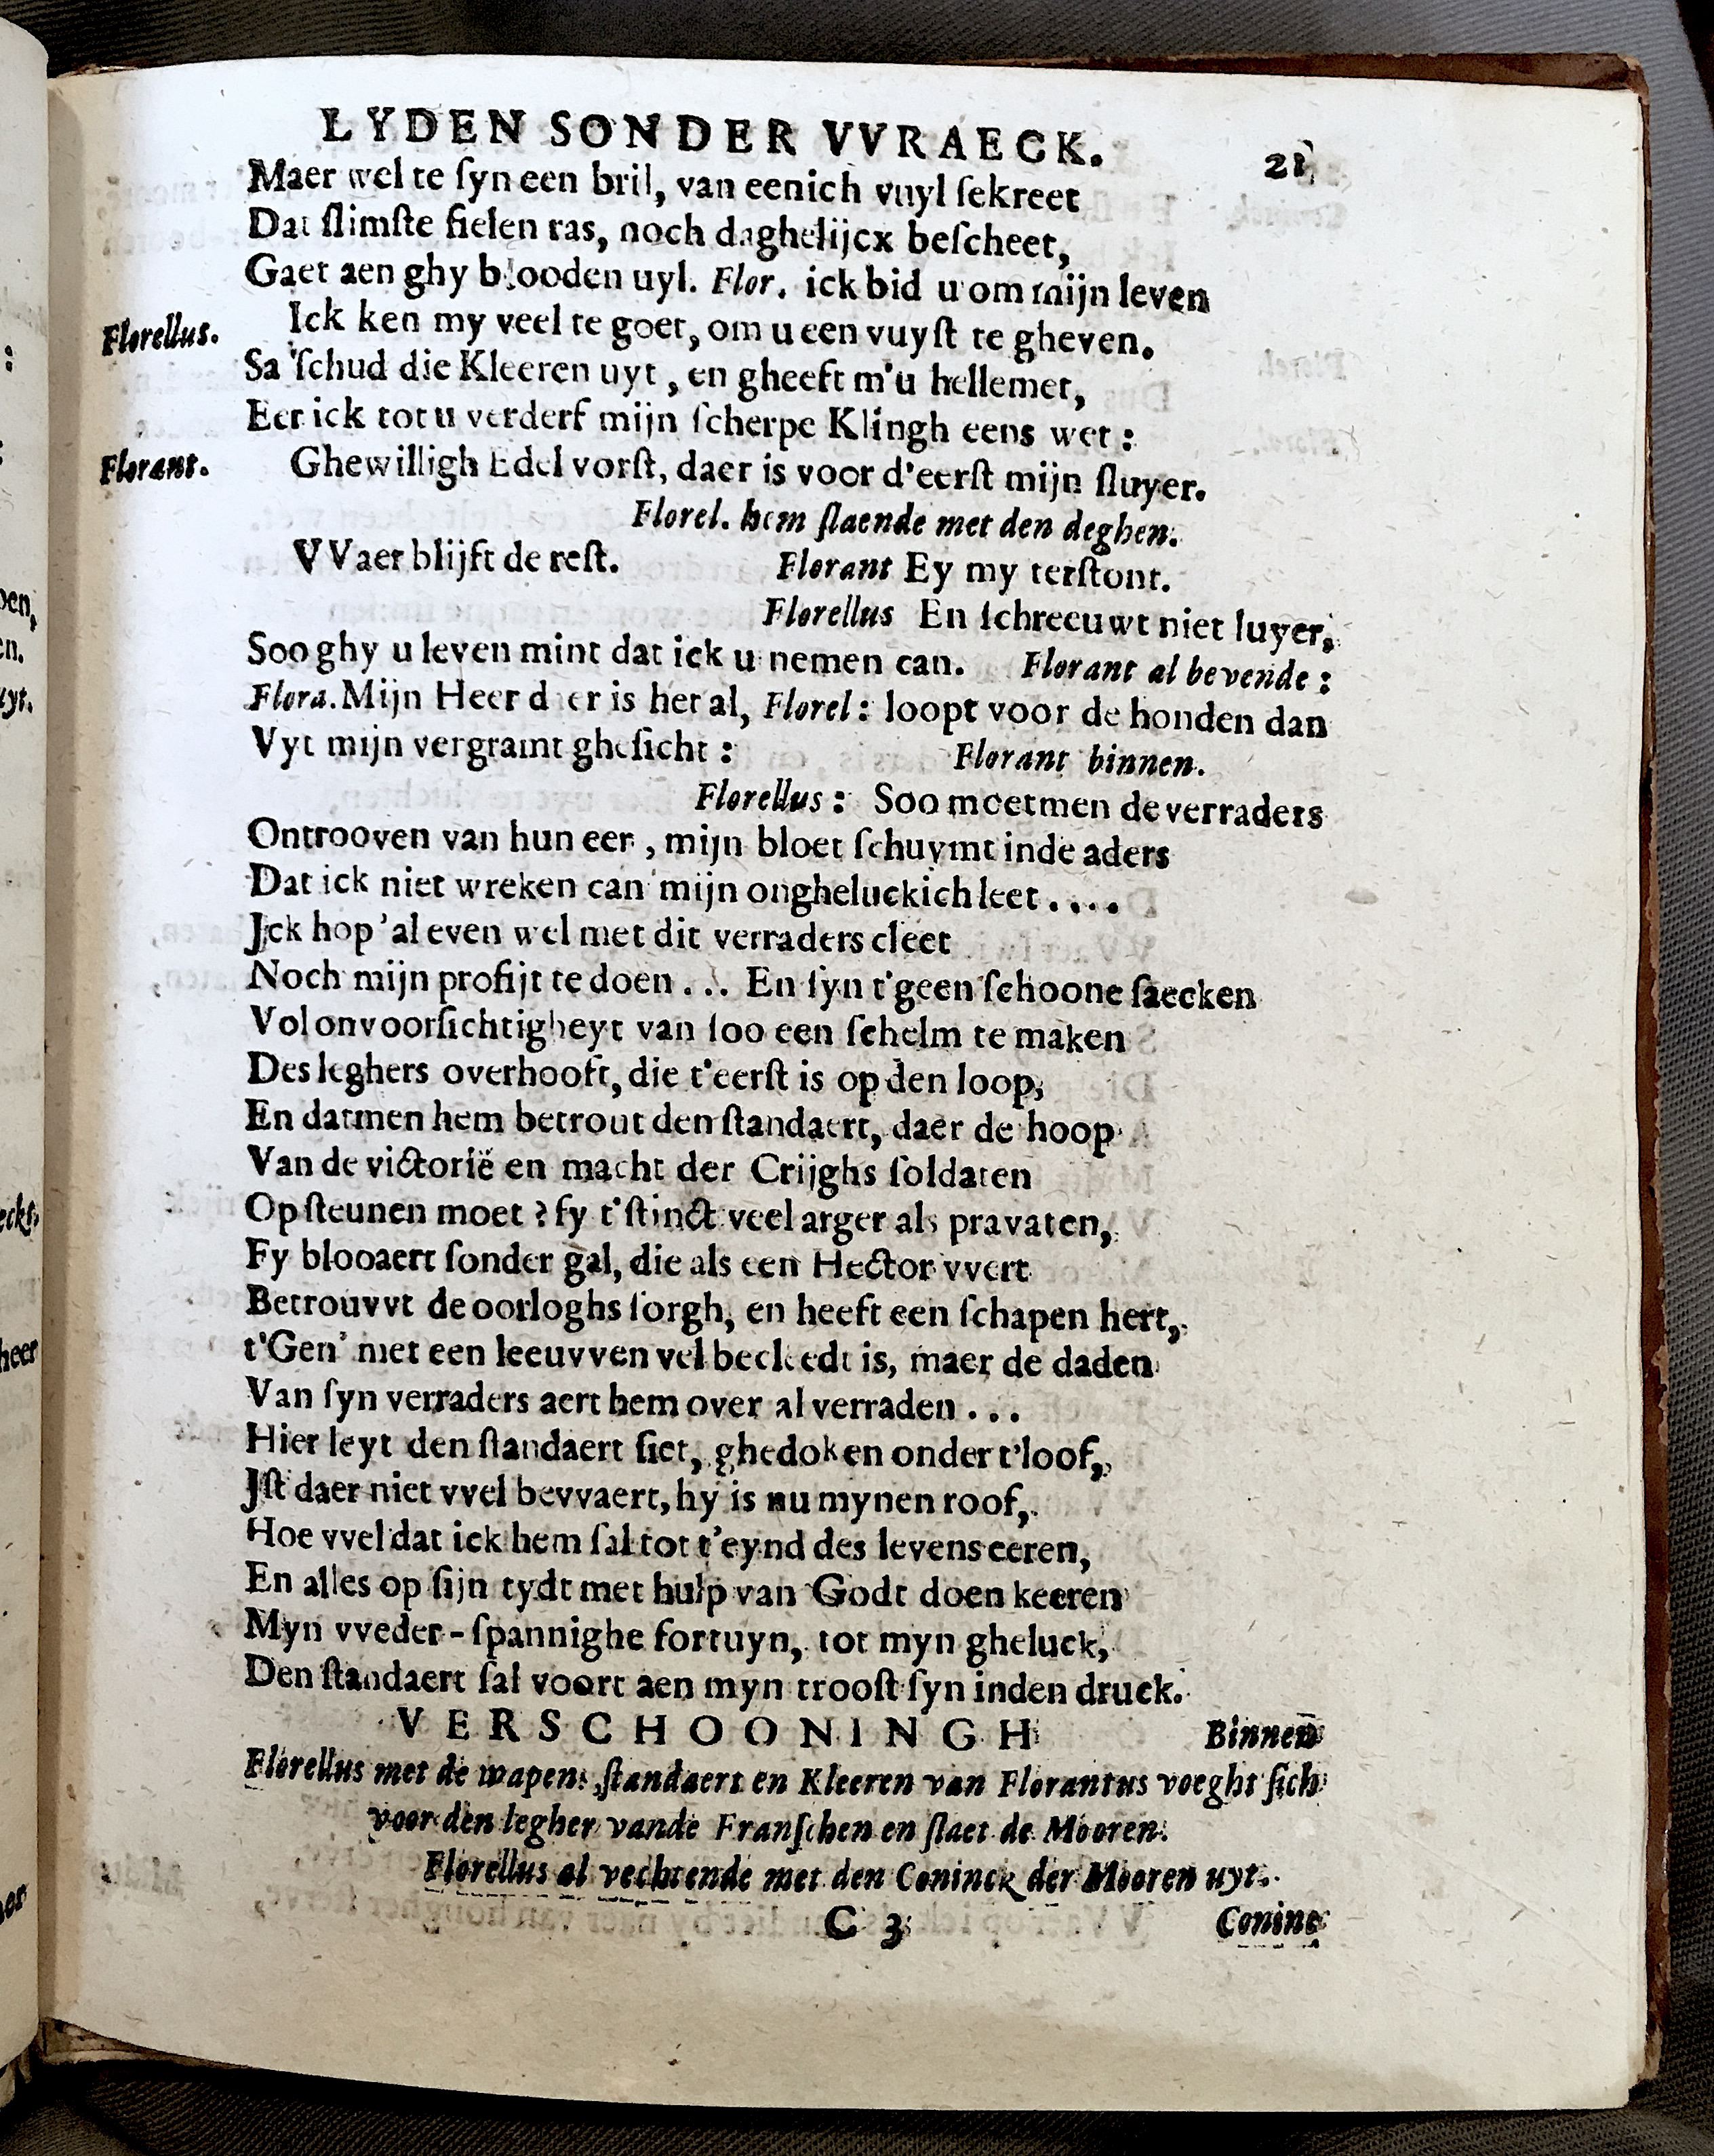 LYDEN SONDER VVRAECK. 21
Maer wel te ſyn een bril, van eenich vuyl ſekreet
Dat ſlimſte fielen ras, noch daghelijcx beſcheet,
Gaet aen ghy blooden uyl. Flor. ick bid u om mijn leven
Florellus. Ick ken my veel te goet, om u een vuyſt te gheven.
Sa 'ſchud die Kleeren uyt, en gheeft m'u hellemet,
Eer ick tot u verderf mijn ſcherpe Klingh eens wet :
Florant. Ghewilligh Edel vorſt, daer is voor d'eerſt mijn ſluyer.
Florel. hem ſlaende met den deghen.
VVaer blijft de reſt. Florant Ey my terſtont.
Florellus En ſchreeuwt niet luyer,
Soo ghy u leven mint dat ick u nemen can. Florant al bevende :
Flora. Mijn Heer d er is het al, Florel : loopt voor de honden dan
Vyt mijn vergramt gheſicht : Florant binnen.
Florellus : Soo moetmen de verraders
Ontrooven van hun eer, mijn bloet ſchuymt inde aders
Dat ick niet wreken can mijn ongheluckich leet ....
Jck hop' al even wel met dit verraders cleet
Noch mijn profijt te doen ... En ſyn t'geen ſchoone ſaecken
Vol onvoorſichtigheyt van ſoo een ſchelm te maken
Des leghers overhooft, die t'eerſt is op den loop,
En datmen hem betrout den ſtandaert, daer de hoop
Van de victorië en macht der Crijghs ſoldaten
Op ſteunen moet ? fy t'ſtinct veel arger als pravaten,
Fy blooaert ſonder gal, die als een Hector vvert
Betrouvvt de oorloghs ſorgh, en heeft een ſchapen hert,
t'Gen' met een leeuvven vel becleedt is, maer de daden
Van ſyn verraders aert hem over al verraden ...
Hier leyt den ſtandaert ſiet, ghedoken onder t'loof,
Jſt daer niet vvel bevvaert, hy is nu mynen roof,
Hoe vvel dat ick hem ſal tot t'eynd des levens eeren,
En alles op ſijn tydt met hulp van Godt doen keeren
Myn vveder-ſpannighe fortuyn, tot myn gheluck,
Den ſtandaert ſal voort aen myn trooſt ſyn inden druck.
VERSCHOONINGH Binnen
Florellus met de wapens ſtandaert en Kleeren van Florantus voeght ſich
voor den legher vande Franſchen en ſlaet de Mooren.
Florellus al vechtende met den Coninck der Mooren uyt.
C 3 Coninc